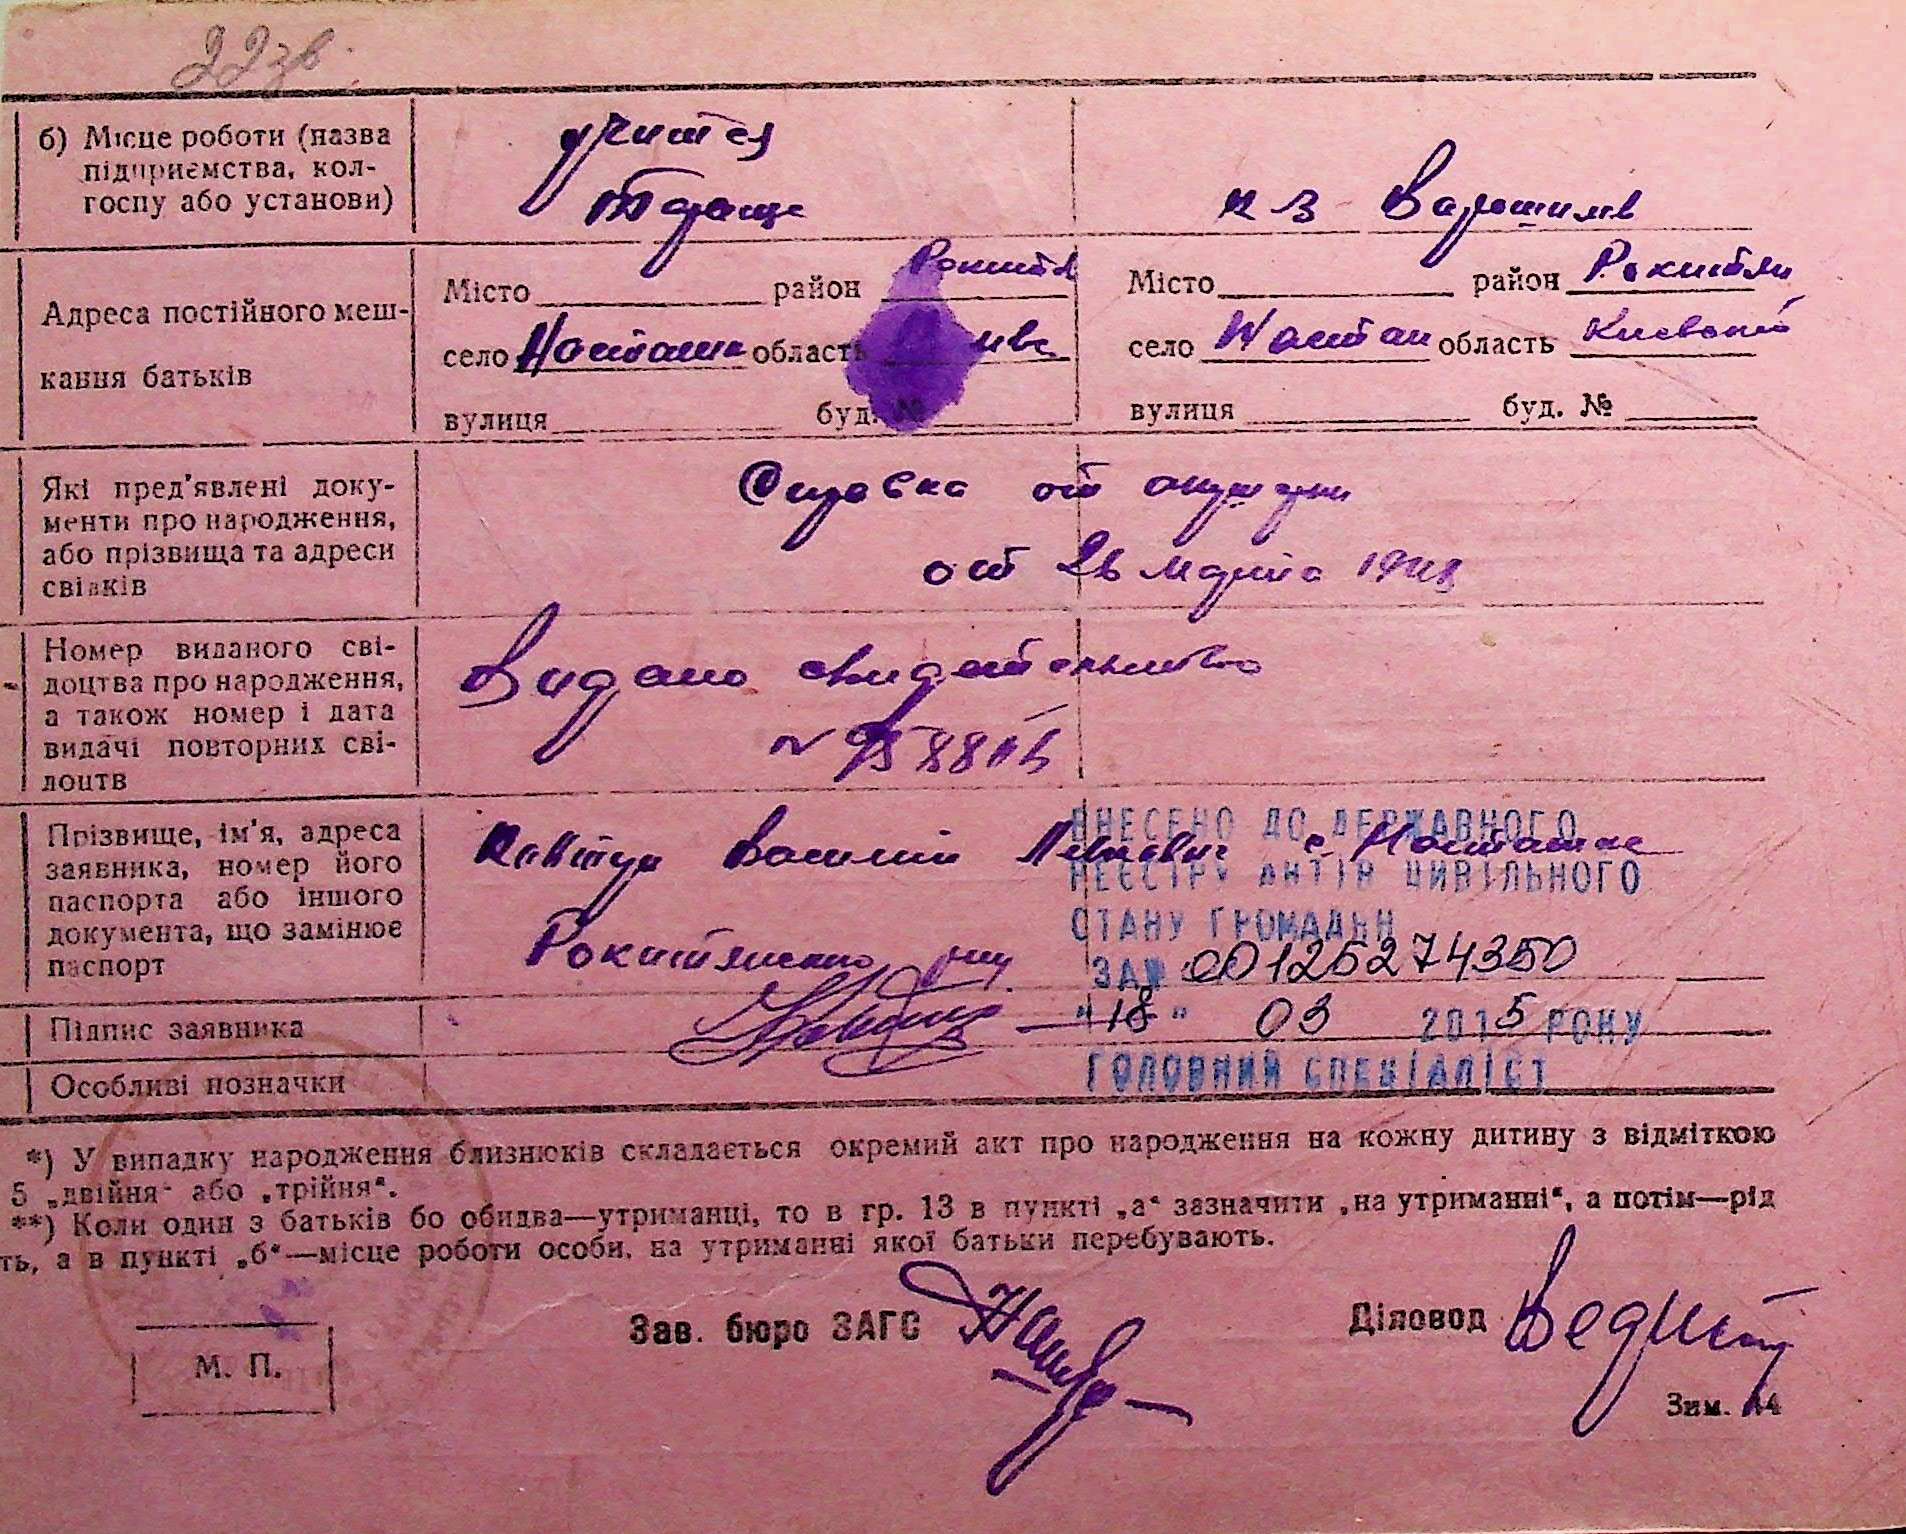 22зв.
б) Місце роботи (назва
підприємства, кол-
госпу або установи)
к-з Варошилів
Адреса постійного меш-
кання батьків
Місто район Рокитя
село Насташка область
вулиця буд. №
Місто район Рокитян
село Насташ область Киевской
вулиця буд. №
Які пред'явлені доку-
менти про народження,
або прізвища та адреси
свідків
Справка от
от 26 марта
Номер виданого сві-
доцтва про народження,
а також номер і дата
видачі повторних сві-
доцтв
Видано свидетельство
№
Прізвище, ім'я, адреса
заявника, номер його
паспорта або іншого
документа, що замінює
паспорт
Василий с. Насташка
Рокитянского р-ну
Підпис заявника
Особливі позначки
ВНЕСЕНО ДО ДЕРЖАВНОГО
РЕЄСТРУ АКТІВ ЦИВІЛЬНОГО
СТАНУ ГРОМАДЯН
ЗА № 00125274350
"18" 03 2015 РОКУ
ГОЛОВНИЙ СПЕЦІАЛІСТ
*) У випадку народження близнюків складається окремий акт про народження на кожну дитину з відміткою
5 „двійня" або „трійня".
**) Коли один з батьків бо обидва—утриманці, то в гр. 13 в пункті „а" зазначити „на утриманні", а потім—рід
ть, а в пункті „б"—місце роботи особи, на утриманні якої батьки перебувають.
М. П.
Зав. бюро ЗАГС
Діловод
Зим. 44